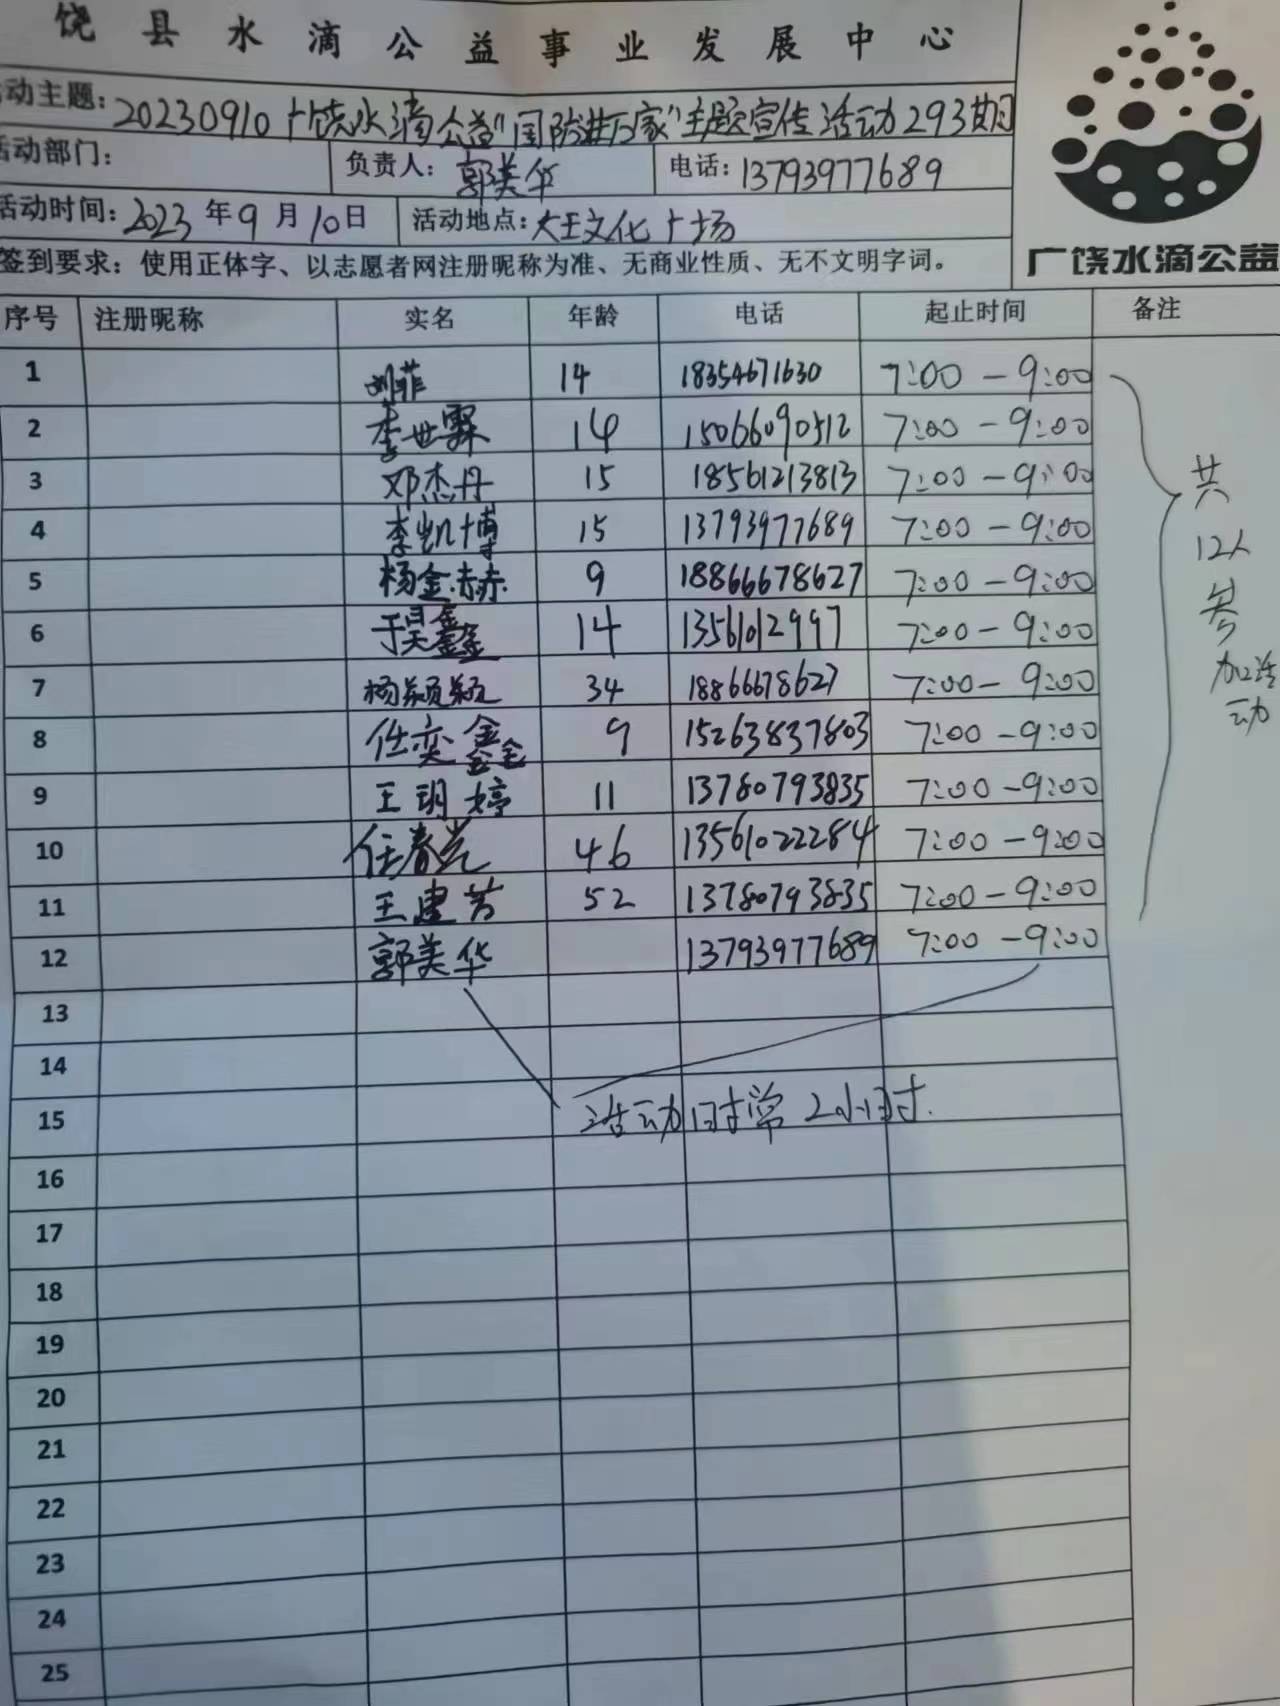 饶县水滴公益事业发展中心
动主题：20230910广饶水滴公益"国防进万家"主题宣传活动293期
活动部门： 负责人：郭美华 电话：13793977689
活动时间：2023年9月10日 活动地点：大王文化广场
签到要求：使用正体字、以志愿者网注册昵称为准、无商业性质、无不文明字词。
广饶水滴公益
序号 注册昵称 实名 年龄 电话 起止时间 备注
1 刘菲 14 18354671630 7:00－9:00
2 李世霖 14 15066090512 7:00－9:00
3 邓杰丹 15 18561213813 7:00－9:00
4 李凯博 15 13793977689 7:00－9:00
5 杨金赫 9 18866678627 7:00－9:00
6 于昊鑫 14 13561012997 7:00－9:00
7 杨颖颖 34 18866678627 7:00－9:00
8 任奕鑫 9 15263837803 7:00－9:00
9 王玥婷 11 13780793835 7:00－9:00
10 任春光 46 13561022284 7:00－9:00
11 王建芳 52 13780793835 7:00－9:00
12 郭美华 13793977689 7:00－9:00
共
12人
参
加活
动
13
14
15 活动时常2小时.
16
17
18
19
20
21
22
23
24
25